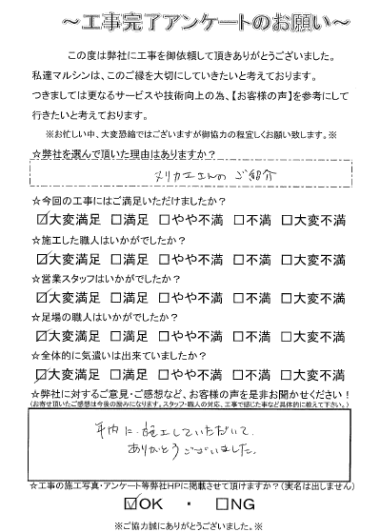 ～工事完了アンケートのお願い～
この度は弊社に工事を御依頼して頂きありがとうございました。
私達マルシンは、このご縁を大切にしていきたいと考えております。
つきましては更なるサービスや技術向上の為、【お客様の声】を参考にして
行きたいと考えております。
※お忙しい中、大変恐縮ではございますが御協力の程宜しくお願い致します。※
☆弊社を選んで頂いた理由はありますか？
メリカエさんの ご紹介
☆今回の工事にはご満足いただけましたか？
☑大変満足 □満足 □やや不満 □不満 □大変不満
☆施工した職人はいかがでしたか？
☑大変満足 □満足 □やや不満 □不満 □大変不満
☆営業スタッフはいかがでしたか？
☑大変満足 □満足 □やや不満 □不満 □大変不満
☆足場の職人はいかがでしたか？
☑大変満足 □満足 □やや不満 □不満 □大変不満
☆全体的に気遣いは出来ていましたか？
☑大変満足 □満足 □やや不満 □不満 □大変不満
☆弊社に対するご意見・ご感想など、お客様の声を是非お聞かせください！
(お寄せ頂いたご感想は今後の励みになります。スタッフ・職人の対応、工事で感じた事など具体的に教えて下さい。)
年内に、施工していただいて、
ありがとうございました。
☆工事の施工写真・アンケート等弊社HPに掲載させて頂けますか？(実名は出しません)
☑OK ・ □NG
※ご協力誠にありがとうございました。※